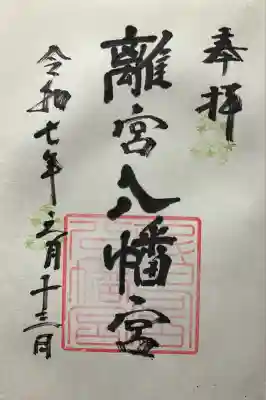 奉拝
離宮八幡宮
令和七年六月十三日